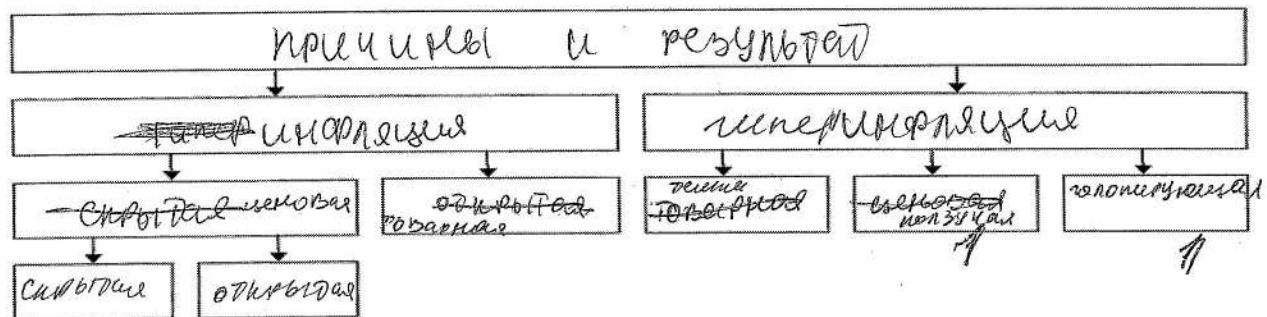 причины и результат
гипер инфляция
гиперинфляция
скрытая ценовая
открытая
товарная
товарная
ценовая
ползучая
галопирующая
скрытая
открытая